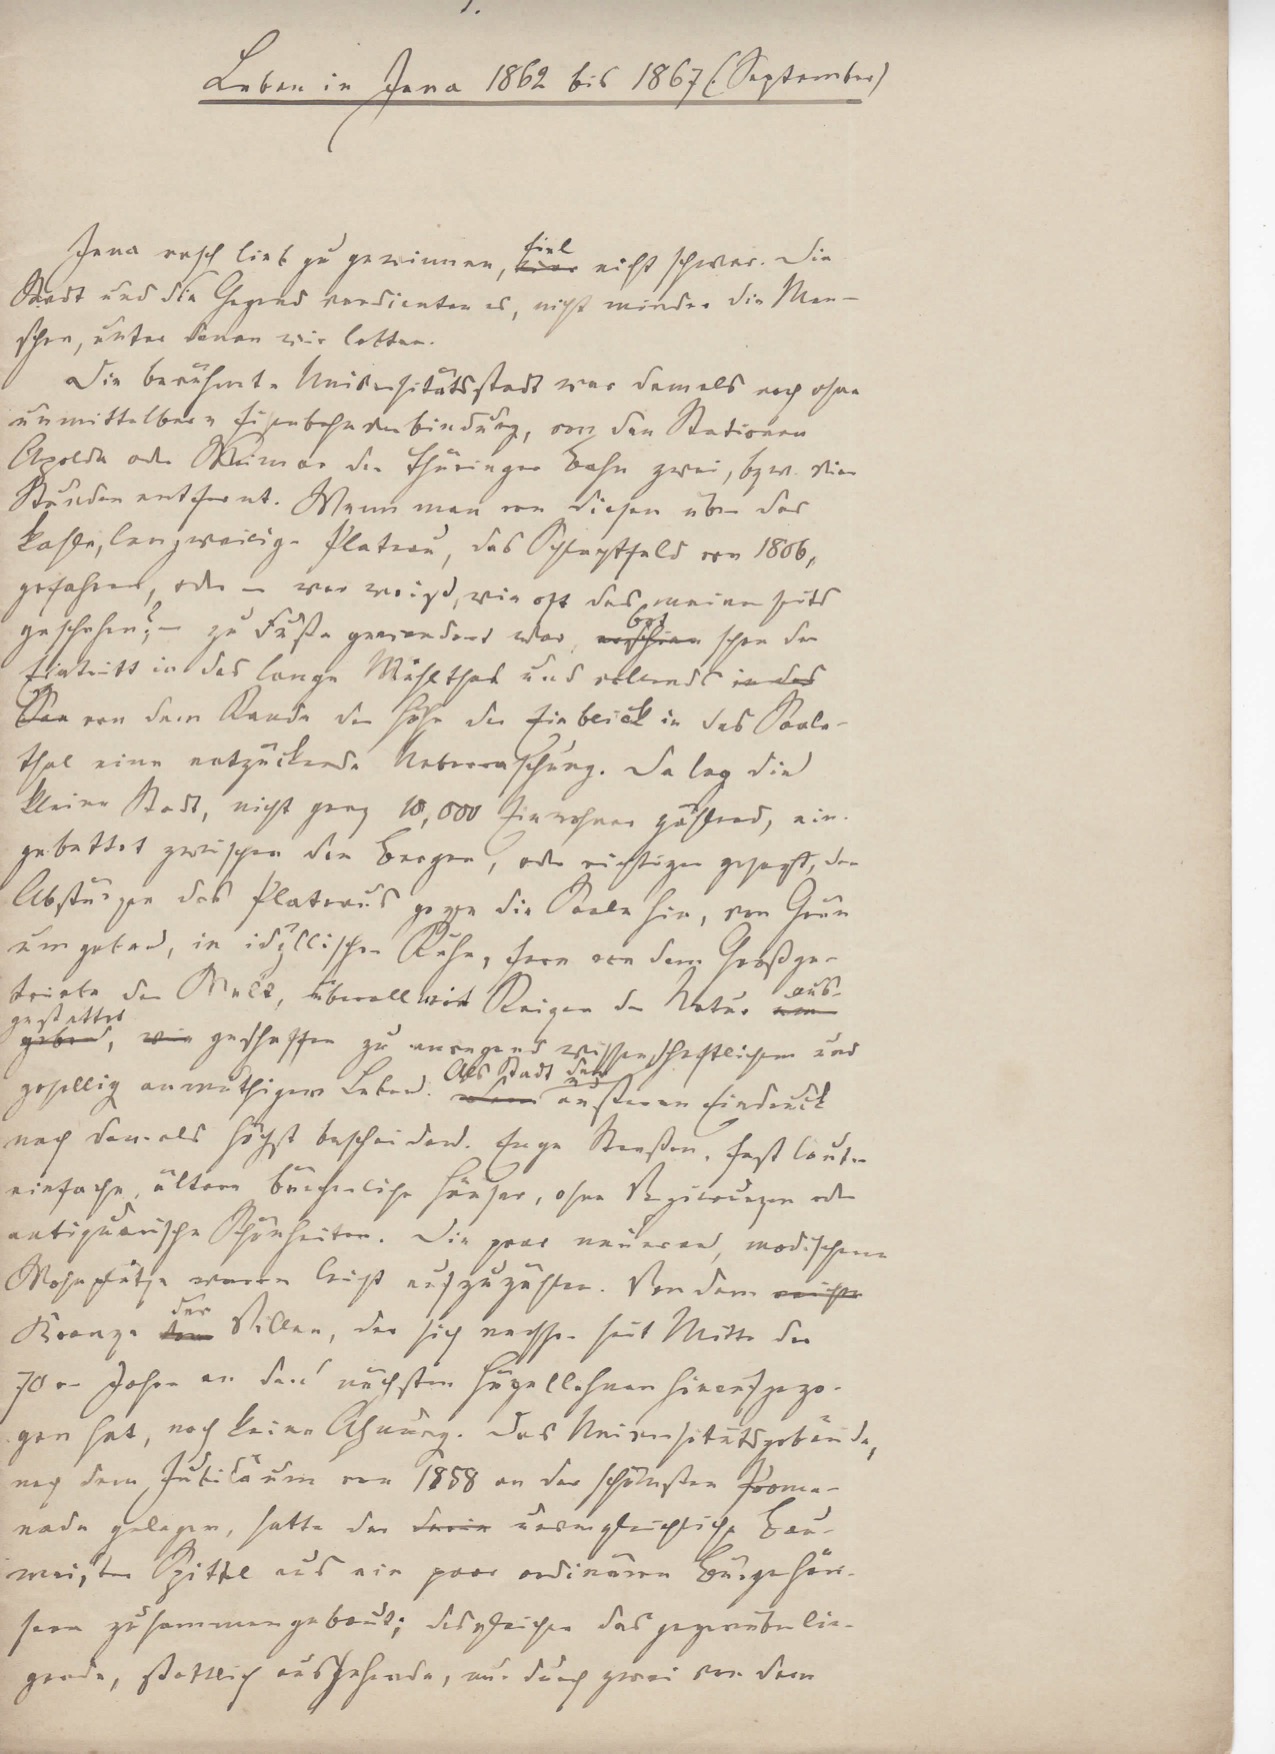 Leben in Jena 1862 bis 1867 (September)
Jena rasch lieb zu gewinnen, fiel nicht schwer. Die
Stadt und die Gegend verdienten es, nicht minder die Men-
schen, unter denen wir lebten.
Die berühmte Universitätsstadt war damals noch ohne
unmittelbare Eisenbahnverbindung, von den Stationen
Apolda oder Weimar der Thüringer Bahn zwei, bzw. vier
Stunden entfernt. Wenn man von diesen über das
kahle, langweilige Plateau, das Schlachtfeld von 1806,
gefahren, oder – wer weiß, wie oft das meinerseits
geschehen? – zu Fuße gewandert war, erschien bot schon der
Eintritt in das lange Mühlthal und vollends in das
von dem Rande der Höhe der Einblick in das Saale-
thal eine entzückende Ueberraschung. Da lag die
kleine Stadt, nicht ganz 10,000 Einwohner zählend, ein-
gebettet zwischen den Bergen, oder richtiger gesagt, den
Abstürzen des Plateaus gegen die Saale hin, von Grün
umgeben, in idyllischer Ruhe, fern von dem Großge-
triebe der Welt, überall mit Reizen der Natur aus-
gestattet geben, wie geschaffen zu anregend wissenschaftlichem und
gesellig anmuthigem Leben. Als Stadt der äußeren Eindruck
noch damals höchst bescheiden. Enge Straßen, fast lauter
einfache, ältere bürgerliche Häuser, ohne Verzierungen oder
antiquarische Schönheiten. Die paar neueren, modischeren
Wohnplätze waren leicht aufzuzählen. Von dem
Kranze der Villen, der sich nachher seit Mitte der
70er Jahre an den nächsten Hügellehnen hinaufgezo-
gen hat, noch keine Ahnung. Das Universitätsgebäude,
nach dem Jubiläum von 1858 an der schönsten Prome-
nade gelegen, hatte der darin unvergleichliche Bau-
meister Spittel aus ein paar ordinären Bürgerhäu-
sern zusammengebaut; desgleichen das gegenüberlie-
gende, stattlich aussehende, nur durch zwei von dem